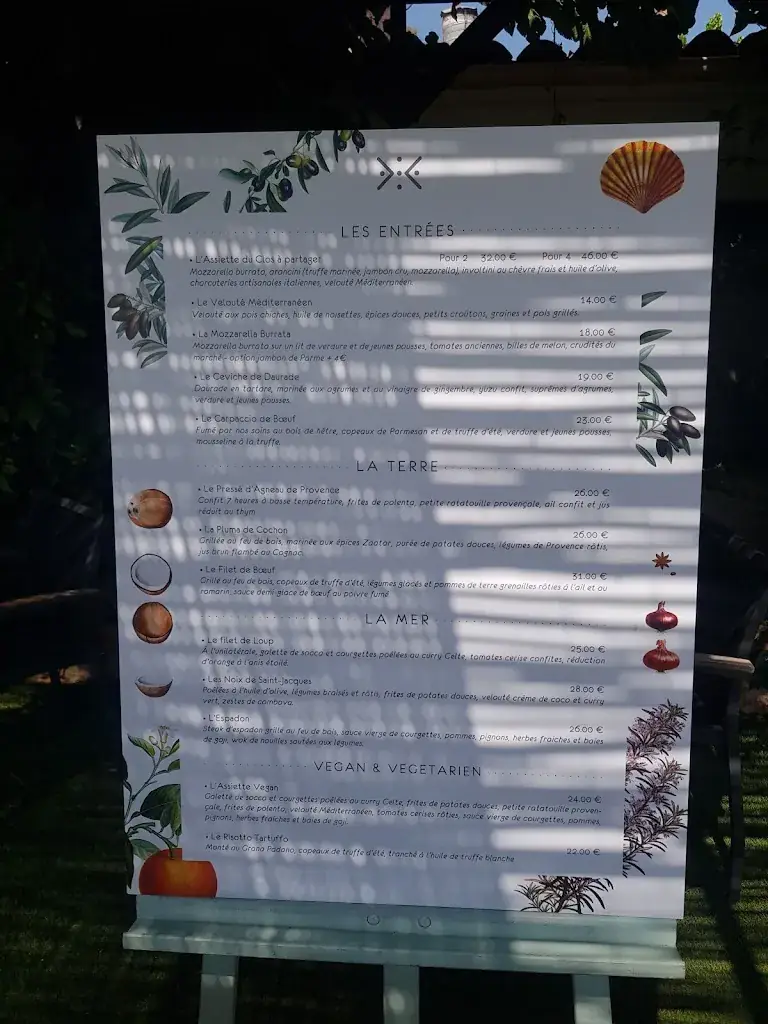 LES ENTRÉES
• L'Assiette du Clos à partager Pour 2 32.00 € Pour 4 46.00 €
Mozzarella burrata, arancini (truffe marinée, jambon cru, mozzarella), involtini au chèvre frais et huile d'olive,
charcuteries artisanales italiennes, velouté Méditerranéen.
• Le Velouté Méditerranéen 14.00 €
Velouté aux pois chiches, huile de noisettes, épices douces, petits croûtons, graines et pois grillés.
• La Mozzarella Burrata 18.00 €
Mozzarella burrata sur un lit de verdure et de jeunes pousses, tomates anciennes, billes de melon, crudités du
marché - option jambon de Parme + 4€
• Le Ceviche de Daurade 19.00 €
Daurade en tartare, marinée aux agrumes et au vinaigre de gingembre, yuzu confit, suprêmes d'agrumes,
verdure et jeunes pousses.
• Le Carpaccio de Bœuf 23.00 €
Fumé par nos soins au bois de hêtre, copeaux de Parmesan et de truffe d'été, verdure et jeunes pousses,
mousseline à la truffe.
LA TERRE
• Le Pressé d'Agneau de Provence 26.00 €
Confit 7 heures à basse température, frites de polenta, petite ratatouille provençale, ail confit et jus
réduit au thym
• La Pluma de Cochon 26.00 €
Grillée au feu de bois, marinée aux épices Zaatar, purée de patates douces, légumes de Provence rôtis,
jus brun flambé au Cognac.
• Le Filet de Bœuf 31.00 €
Grillé au feu de bois, copeaux de truffe d'été, légumes glacés et pommes de terre grenailles rôties à l'ail et au
romarin, sauce demi-glace de bœuf au poivre fumé.
LA MER
• Le filet de Loup 25.00 €
À l'unilatérale, galette de socca et courgettes poêlées au curry Celte, tomates cerise confites, réduction
d'orange à l'anis étoilé.
• Les Noix de Saint-Jacques 28.00 €
Poêlées à l'huile d'olive, légumes braisés et rôtis, frites de patates douces, velouté crème de coco et curry
vert, zestes de combava.
• L'Espadon 26.00 €
Steak d'espadon grillé au feu de bois, sauce vierge de courgettes, pommes, pignons, herbes fraîches et baies
de goji, wok de nouilles sautées aux légumes.
VEGAN & VEGETARIEN
• L'Assiette Vegan 24.00 €
Galette de socca et courgettes poêlées au curry Celte, frites de patates douces, petite ratatouille proven-
çale, frites de polenta, velouté Méditerranéen, tomates cerises rôties, sauce vierge de courgettes, pommes,
pignons, herbes fraîches et baies de goji.
• Le Risotto Tartuffo 22.00 €
Monté au Grana Padano, copeaux de truffe d'été, tranché à l'huile de truffe blanche